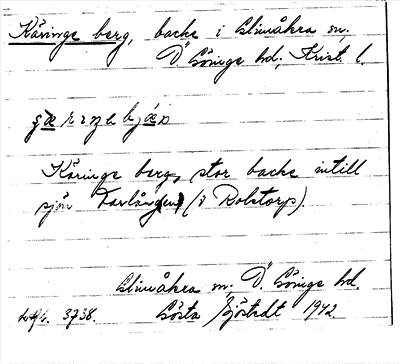 Käringe berg, backe i Glimåkra sn,
Ö Göinge hd; Krist. l.
Käringe berg, stor backe intill
sjön Tavlången (i Rolstorp).
Glimåkra sn. Ö. Göinge hd.
3738. Gösta Sjöstedt 1942.